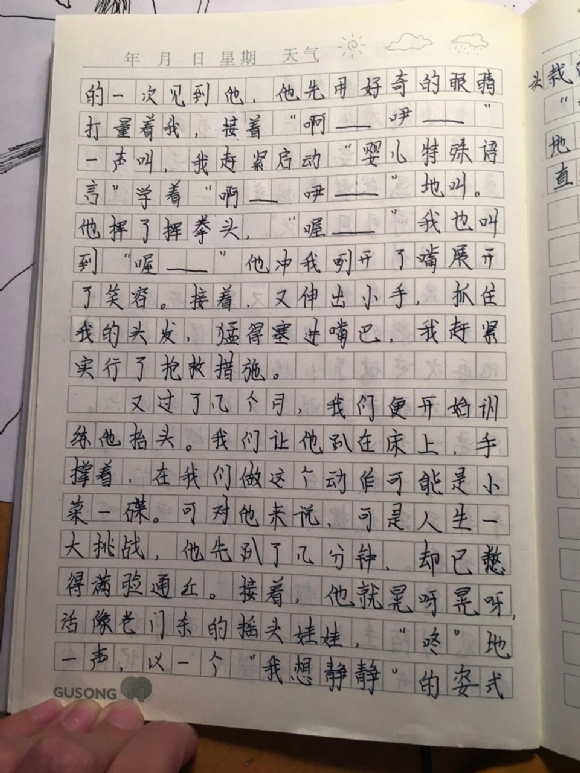 年 月 日 星期 天气
的一次见到他，他先用好奇的眼睛
打量着我，接着“啊——咿——”
一声叫，我赶紧启动“婴儿特殊语
言”学着“啊——咿——”地叫。
他挥了挥拳头，“喔——”我也叫
到“喔——”他冲我列开了嘴展开
了笑容。接着，又伸出小手，抓住
我的头发，猛得塞进嘴巴，我赶紧
实行了抢救措施。
又过了几个月，我们便开始训
练他抬头。我们让他趴在床上，手
撑着，在我们做这个动作可能是小
菜一碟。可对他来说，可是人生一
大挑战，他先趴了几分钟，却已憋
得满脸通红。接着，他就晃呀晃呀，
活像老门东的摇头娃娃，“咚”地
一声，以一个“我想静静”的姿式
GUSONG
头栽
地
直